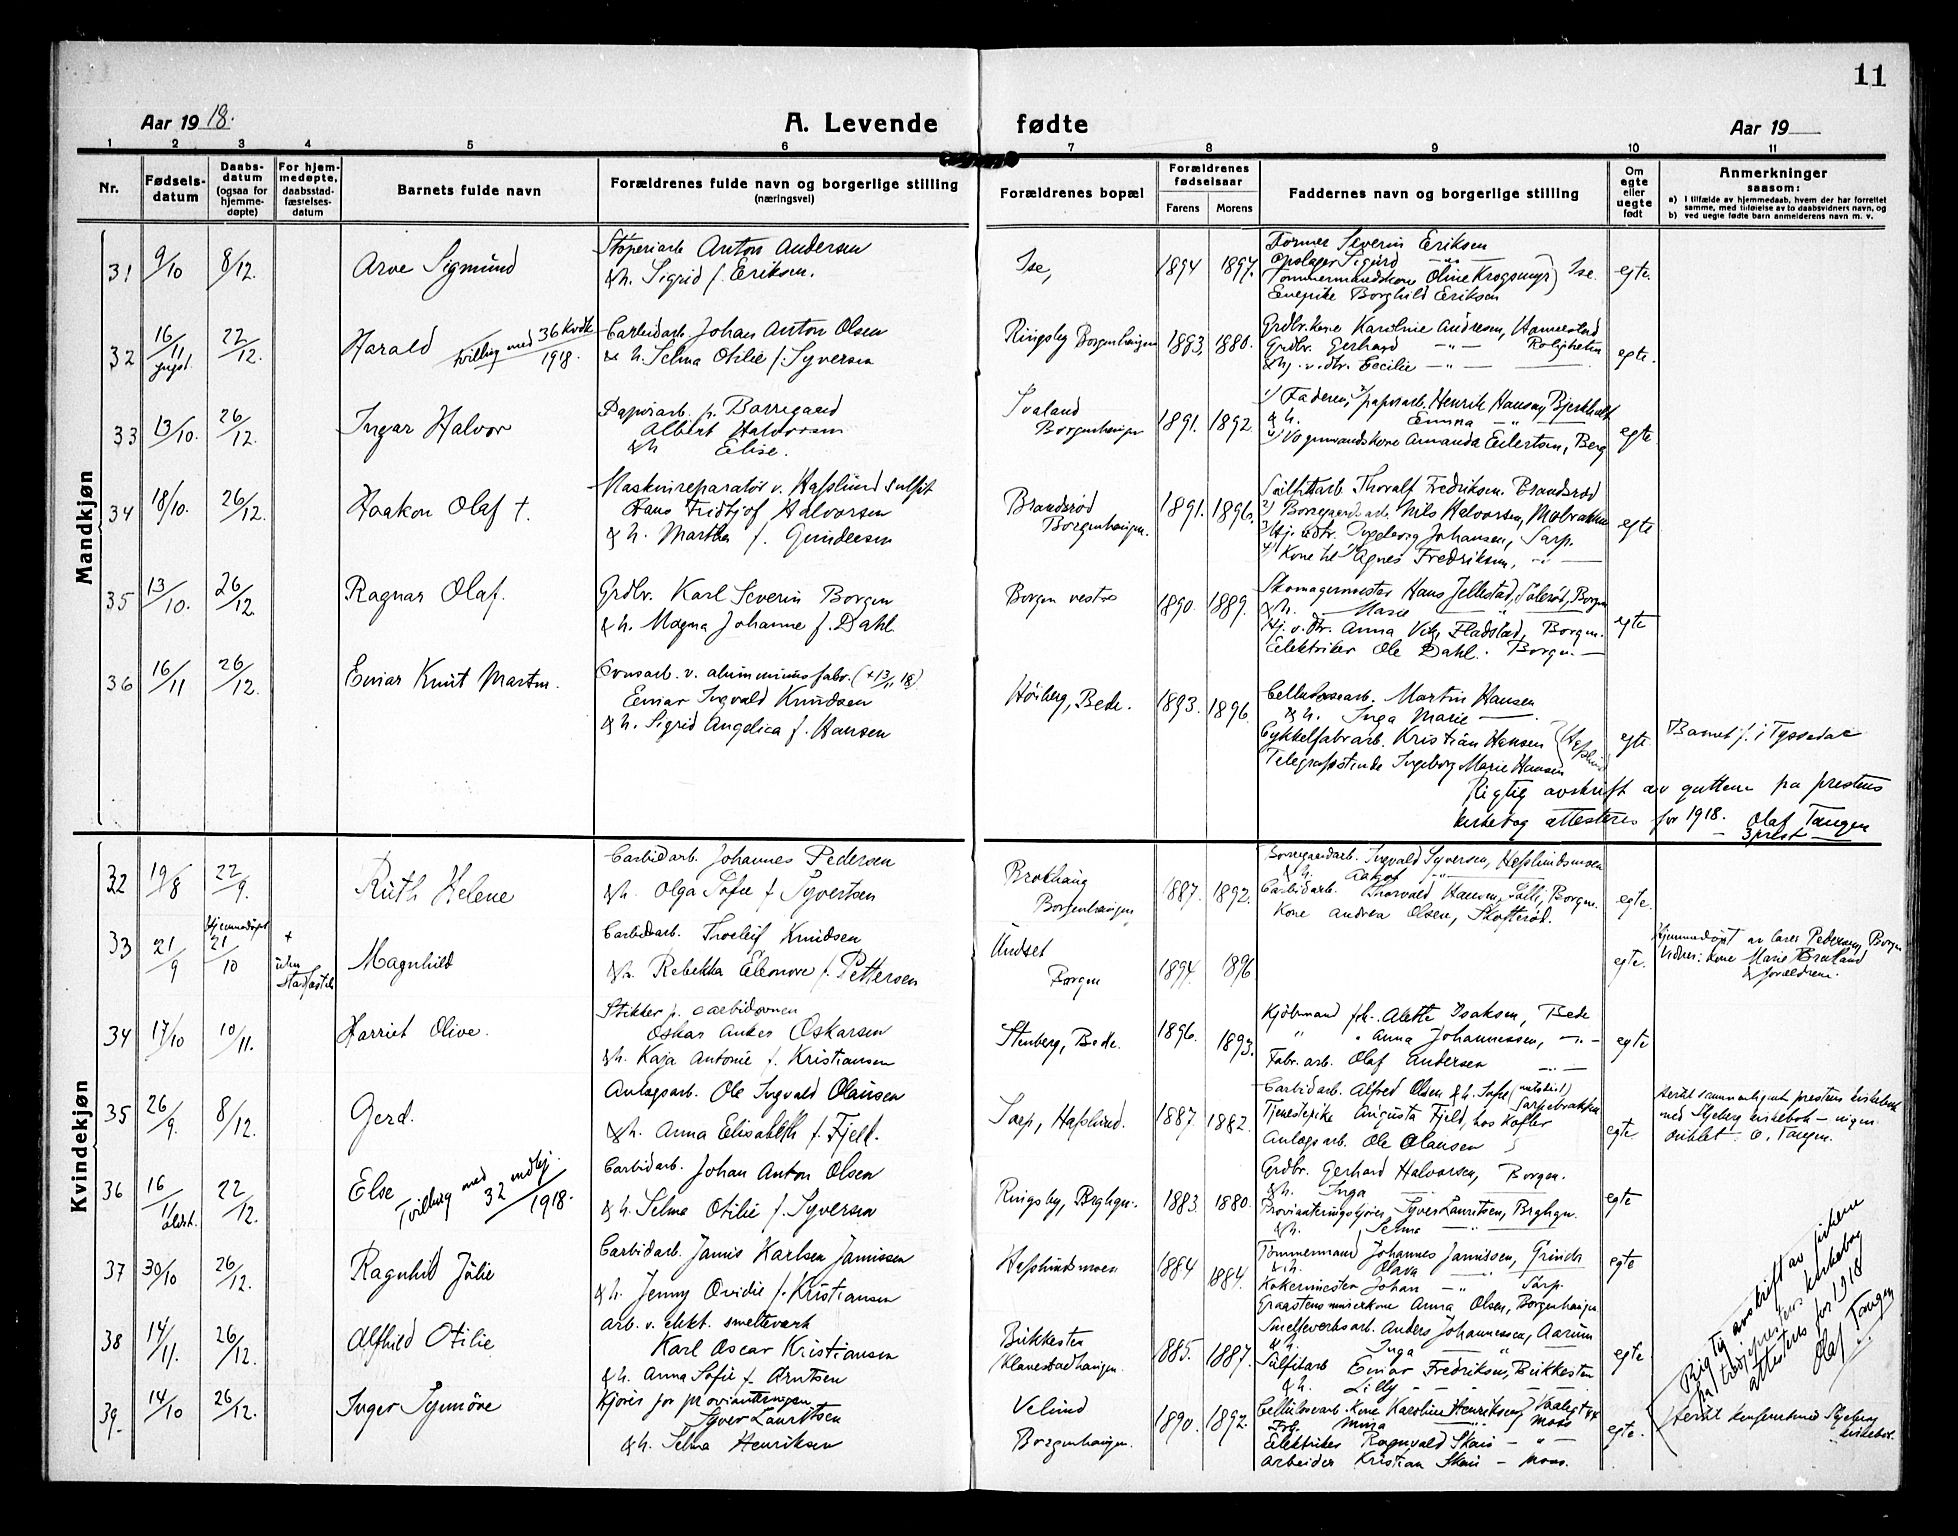 11
Aar 1918.
A. Levende fødte
Aar 19
1 2 3 4 5 6 7 8 9 10 11
Nr.
Fødsels-
datum
Daabs-
datum
(ogsaa for
hjemme-
døpte)
For hjem-
medøpte,
daabsstad-
fæstelses-
datum
Barnets fulde navn
Forældrenes fulde navn og borgerlige stilling
(næringsvei)
Forældrenes bopæl
Forældrenes
fødselsaar
Farens Morens
Faddernes navn og borgerlige stilling
Om
egte
eller
uegte
født
Anmerkninger
saasom:
a) I tilfælde av hjemmedaab, hvem der har forrettet
samme, med tilføielse av to daabsvidners navn, og
b) ved uegte fødte barn anmelderens navn m. v.
Mandkjøn
31 9/10 8/12. Arve Sigmund
Støperiarb Anton Andersen
& h. Sigrid f. Eriksen.
Ise, 1894 1897.
Former Severin Eriksen
Opslager Sigurd — " —
Tømmermandskone Oline Krogsmyr) Ise.
Enepike Borghild Eriksen
egte.
32 16/11 yngst. 22/12. Harald tvilling med 36 kvdk 1918.
Carbidarb. Johan Anton Olsen
& h. Selma Otilie f. Syversen
Ringsby Borgenhaugen 1883. 1880.
Grdbr. kone Karoline Andresen, Hannestad
Grdbr. Gerhard — " — Roligheten
& hj. v. dtr. Cecilie — " —
egte.
33 13/10. 26/12. Ingar Halvor
Papirarb. p. Borregaard
Albert Halvorsen
& h Elise.
Borgenhaugen 1891. 1892
1) Faderen, 2) papirarb. Henrik Hansen, Bjerkholt
& h. Emma "
Vognmandskone Amanda Eilertsen, Berg
egte
34 18/10. 26/12. Haakon Olaf †.
Maskinreparatør v. Hafslund sulfit
Hans Fridtjof Halvorsen
& h. Martha f. Gundersen
Brandsrød
Borgenhaugen. 1891. 1896.
Sulfitarb Thorolf Fredriksen. Brandsrød
2) Borregaardsarb. Nils Halvorsen,
3) Hj. v. dtr. Ingeborg Johansen, Sarp.
4) Kone til 1) Agnes Fredriksen,
egte
35 13/10. 26/12. Ragnar Olaf.
Grdbr. Karl Severin Borgen
& h. Magna Johanne f. Dahl.
Borgen vestre 1890. 1889.
Skomagermester Hans Jellestad, Solerød, Borgen
& h. Marie
Hj. v. dtr. Anna Vik, Fladstad, Borgen.
Elektriker Ole Dahl. Borgen. —
egte
36 16/11 26/12. Einar Knut Martin.
Ovnsarb. v. aluminiumsfabr. († 13/11 18)
Einar Ingvald Knudsen
& h. Sigrid Angelica f. Hansen
Høiberg, Bede. 1893. 1896.
Cellulosearb. Martin Hansen
& h. Inga Marie —
Cykkelfabrarb. Kristian Hansen
Telegrafistinde Ingeborg Marie Hansen
Hafslund
egte.
Barnet f. i Tyssedal
Rigtig avskrift av guttene paa prestens
kirkebog attesteres for 1918. Olaf Tangen
3prest
Kvindekjøn
32 19/8 22/9. Ruth Helene
Carbidarb. Johannes Pedersen
& h. Olga Sofie f Syvertsen
Brokhaug
Borgenhaugen 1887. 1892.
Borregaardarb. Ingvald Syversen, Hafslundsmoen
& h. Aagot "
Carbidarb. Thorvald Hansen, Borgen.
Kone Andrea Olsen, Skofterød.
egte.
33 21/9 Hjemmedøpt 21/10 † uten stadfæstelse Magnhild
Carbidarb. Troleif Knudsen
& h. Rebekka Eleonore f. Pettersen
Undset
Borgen 1894. 1896
egte.
Hjemmedøpt av Lars Pedersen, Borgen
Vidner: Kone Marie
& forældrene.
34 17/10 10/11. Harriet Olive.
Stikker p. carbidovnen
Oskar Anker Oskarsen
& h. Kaja Antonie f. Kristiansen
Stenberg, Bede. 1896. 1893.
Kjøbmand frk. Alette Isaksen, Bede
" " Anna Johannessen, — " —
Fabr. arb. Olaf Andersen — " —
egte
35 26/9. 8/12. Gerd.
Anlægsarb. Ole Ingvald Olausen
& h. Anna Elisabeth f. Fjeld.
Sarp, Hafslund. 1887. 1882.
Carbidarb. Alfred Olsen & h. Sofie
Tjenestepike Augusta Fjeld, hos Kofler
Anlægsarb. Ole Olausen
egte
prestens kirkebok
med Skjeberg kirkebok — ingen
O. Tangen.
36 16/11 ældst. 22/12. Else Tvilling med 32 mdkj. 1918.
Carbidarb. Johan Anton Olsen
& h. Selma Otilie f. Syversen
Ringsby, Brghgn. 1883. 1880.
Grdbr. Gerhard Halvorsen, Borgen.
& h. Inga
Syver Lauritsen, Brghgn.
& h. Selma — " —
egte
37 30/10 26/12. Ragnhild Julie
Carbidarb. Janus Karlsen Janussen
& h. Jenny Ovidie f. Kristiansen
Hafslundsmoen 1884 1884.
Tømmermand Johannes Janussen, Grinda
& h. Olava "
Kokermester Johan — " — Sarp.
Graastensminerkone Anna Olsen, Borgenhaugen
egte
38 14/11. 26/12. Alfhild Otilie
Arb. v. elekt. smelteverk
Karl Oscar Kristiansen
& h. Anna Sofie f. Arntsen
Bukkesten
Klavestadhaugen. 1885. 1887.
Smelteverksarb. Anders Johannessen, Aarum
& h. Inga "
Sulfitarb Einar Fredriksen, Bukkesten
& h. Lilly
egte
39. 14/10 26/12. Inger Synnøve
Kjører for provianteringen
Syver Lauritsen
& h. Selma Henriksen
Velund
Borgenhaugen. 1890. 1892.
Cellulosearb. Kone Karoline Henriksen,
Frk. Mina Moss
Elektriker Ragnvald Skau — " —
Arbeider Kristian Skau — Moss.
egte.
Rigtig avskrift av pikene
paa tredjeprestens kirkebog
attesteres for 1918
Olaf Tangen
konfereret med Skjeberg
kirkebok.